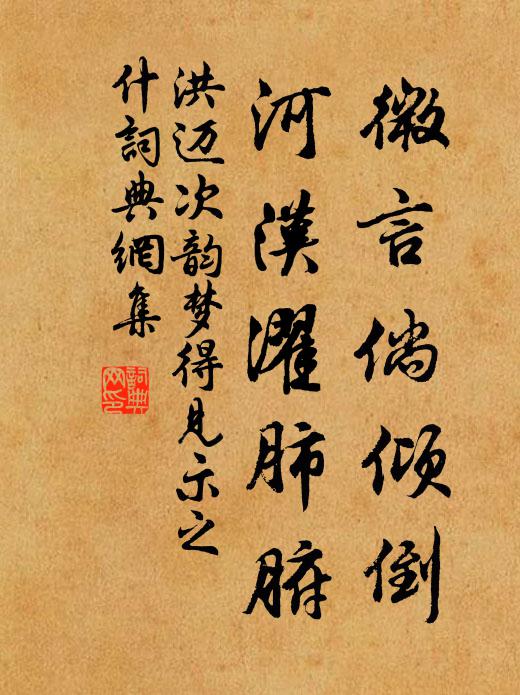 微言倘倾倒
河漢濯肺腑
洪迈次韵梦得见示之
什詞典網集
詞典
网印